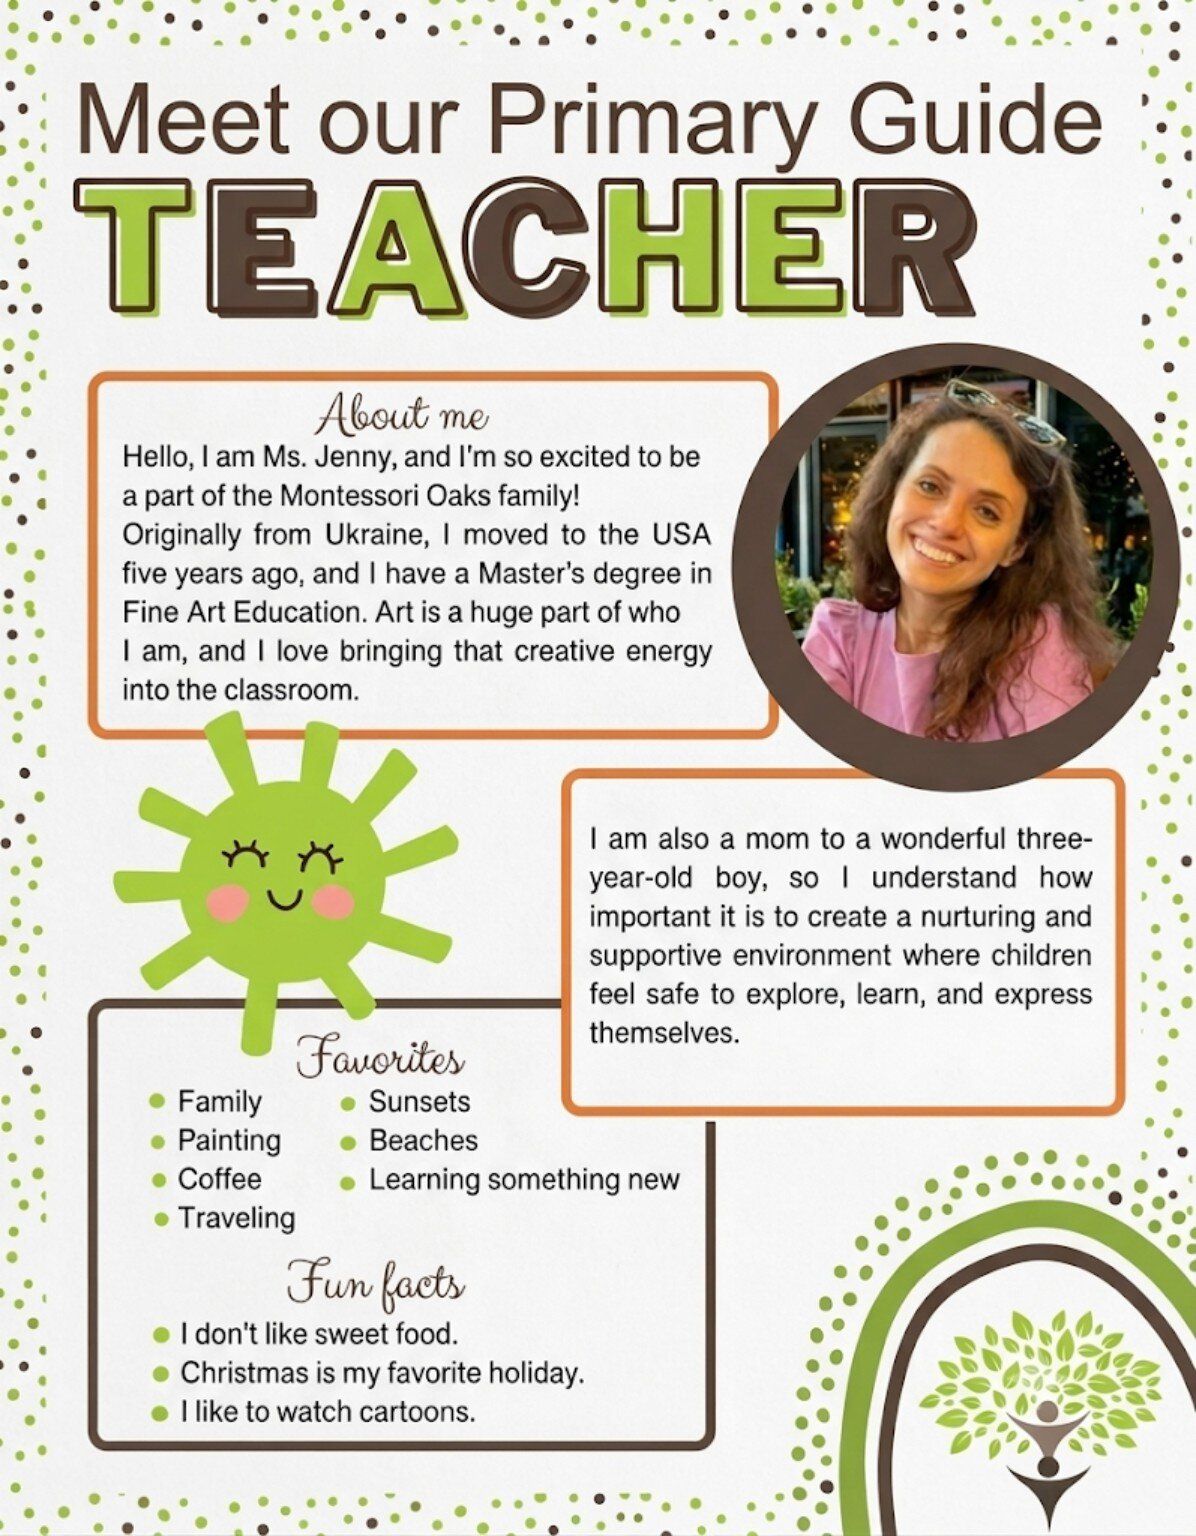 Meet our Primary Guide
TEACHER
About me
Hello, I am Ms. Jenny, and I'm so excited to be
a part of the Montessori Oaks family!
Originally from Ukraine, I moved to the USA
five years ago, and I have a Master's degree in
Fine Art Education. Art is a huge part of who
I am, and I love bringing that creative energy
into the classroom.
I am also a mom to a wonderful three-
year-old boy, so I understand how
important it is to create a nurturing and
supportive environment where children
feel safe to explore, learn, and express
themselves.
Favorites
Family
Painting
Coffee
Traveling
Sunsets
Beaches
Learning something new
Fun facts
I don't like sweet food.
Christmas is my favorite holiday.
I like to watch cartoons.